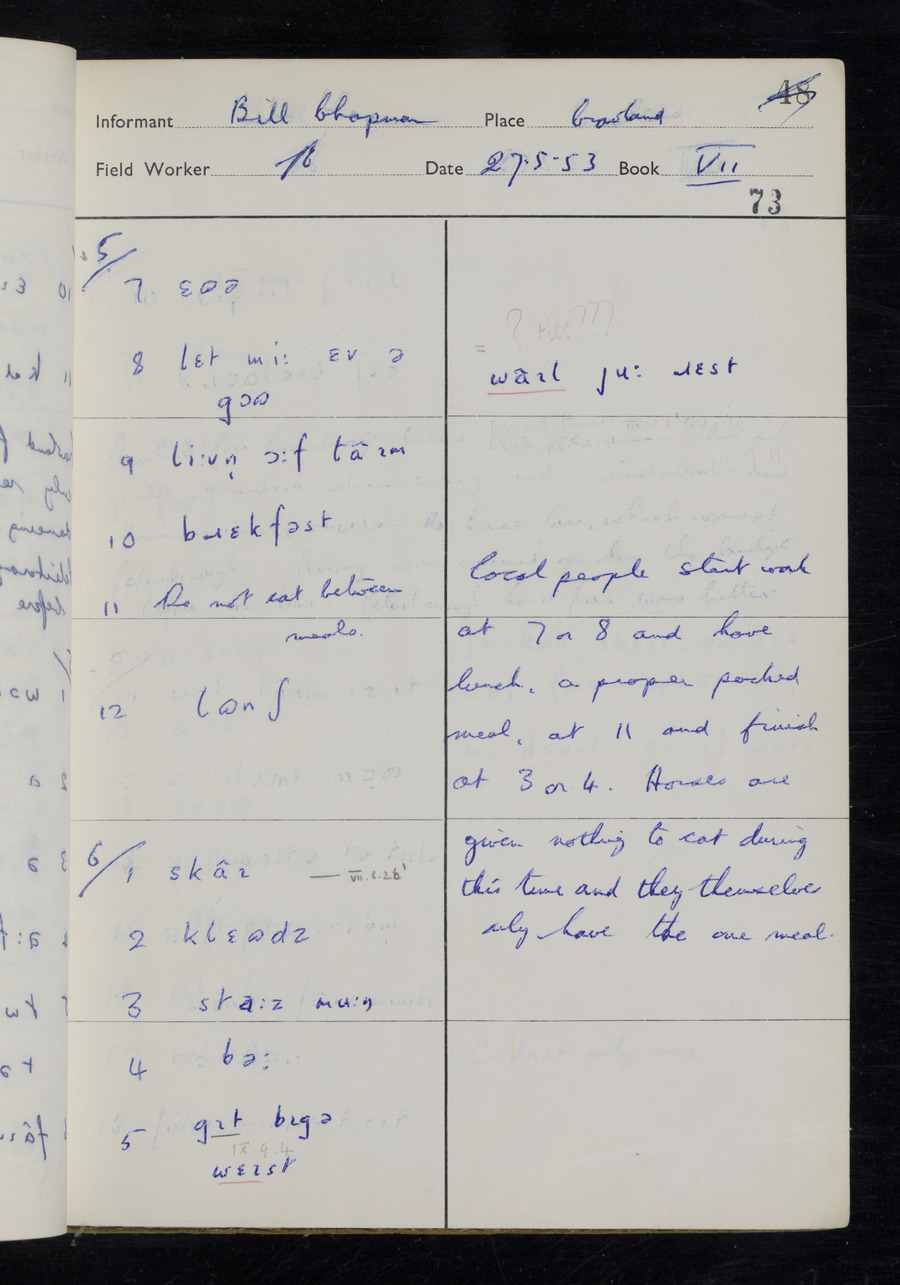 48
Informant Bill Chapman Place Crowland
Field Worker Date 27.5.53 Book VII
73
5/
7 ɛəə
8 lɛt mi: ɛv ə
gɔə
9 li:vn̩ ɔ:f tâɪm
10 bɹɛkfəst
11 Do not eat between
meals.
12 lʊnʃ
6/ 1 skâɪ — VII.6.2b¹
2 klɛʊdz
3 sta:z mu:n
4 bə:
5 gɪt bɪgə
IX.9.4
wɛɪst
= ? ???
wāɪl ju: ɹɛst
local people start work
at 7 or 8 and have
lunch, a proper packed
meal, at 11 and finish
at 3 or 4. Horses are
given nothing to eat during
this time and they themselves
only have the one meal.